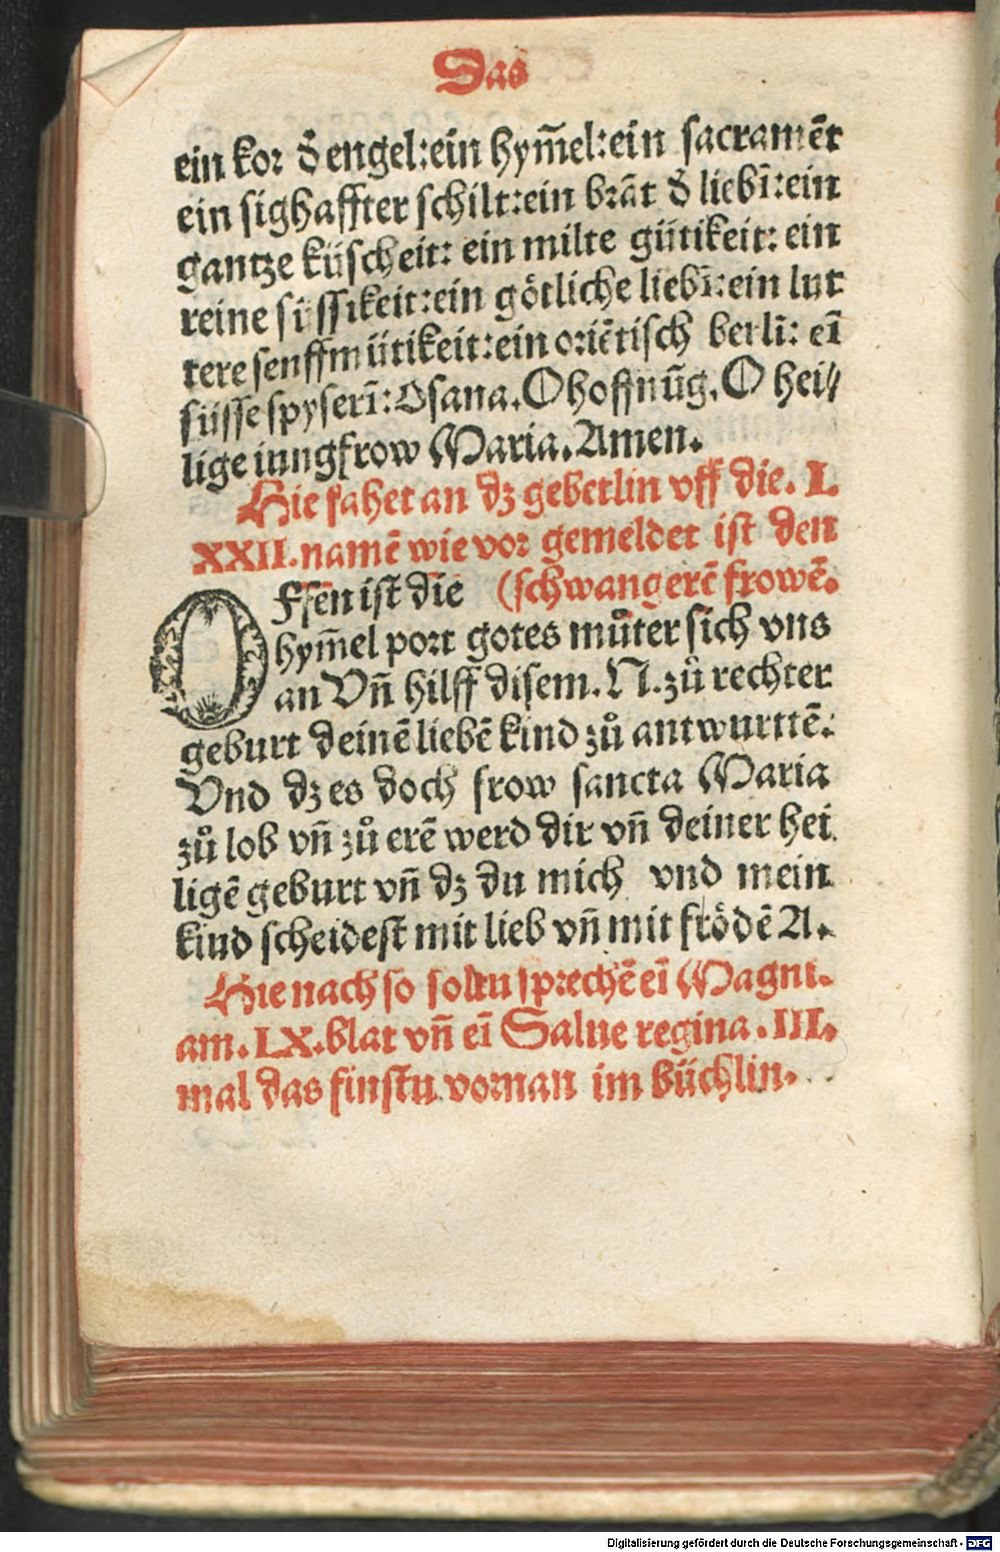 Das
ein kor d̕ engel:ein hym̄el:ein sacramēt
ein sighaffter schilt:ein brāt d̕ liebī:ein
gantze küscheit: ein milte gütikeit: ein
reine süssikeit:ein götliche liebī:ein lut
tere senfftmütikeit:ein oriētisch berlī: eī
süsse spyserī:Osana.O hoffnūg.O hei⸗
lige iungfrow Maria.Amen.
Hie fahet an dz gebetlin vff die. L
XXII.namē wie vor gemeldet ist den
(schwangerē frowē.
OFfen ist die
hym̄el port gotes můter sich vns
an Vn̄ hilff disem.N.zů rechter
geburt deinē liebē kind zů antwurttē:
Vnd dz es doch frow sancta Maria
zů lob vn̄ zů erē werd dir vn̄ deiner hei
ligē geburt vn̄ dz du mich vnd mein
kind scheidest mit lieb vn̄ mit frödē A.
Hie nach so soltu sprechē eī Magni.
am.LX.blat vn̄ eī Salue regina.III.
mal das finstu vornan im büchlin.
Digitalisierung gefördert durch die Deutsche Forschungsgemeinschaft - DFG